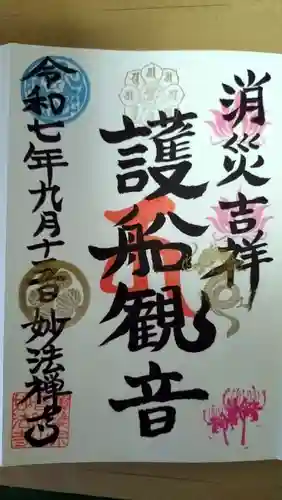 消災吉祥
護船観音
令和七年九月十一日妙法禅寺